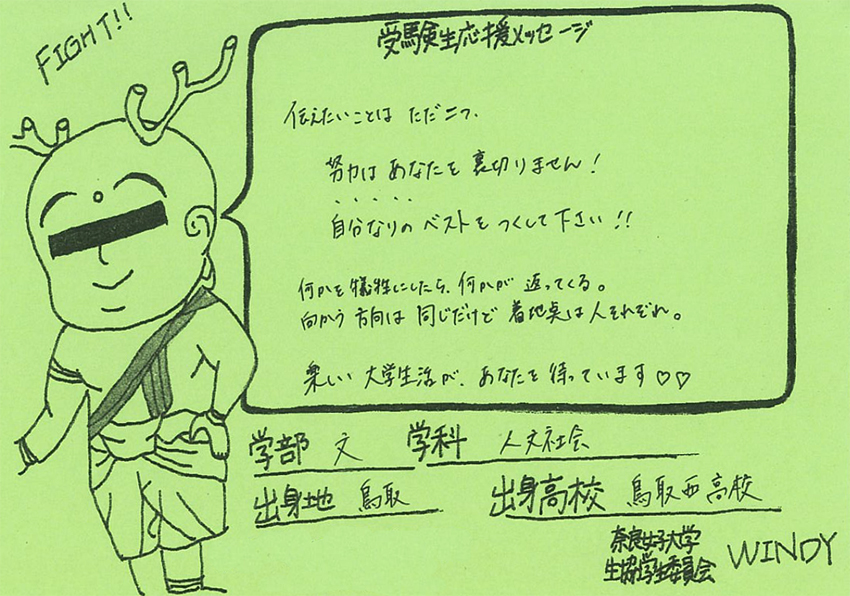 FIGHT!!
受験生応援メッセージ
伝えたいことは ただ二つ、
努力は あなたを 裏切りません!
自分なりの ベストを つくして下さい!!
何かを犠牲にしたら、何かが 返ってくる。
向かう 方向は 同じだけど 着地点は 人それぞれ。
楽しい 大学生活が、あなたを 待っています♡♡
学部 文 学科 人文社会
出身地 鳥取 出身高校 鳥取西高校
奈良女子大学
生協学生委員会 WINDY